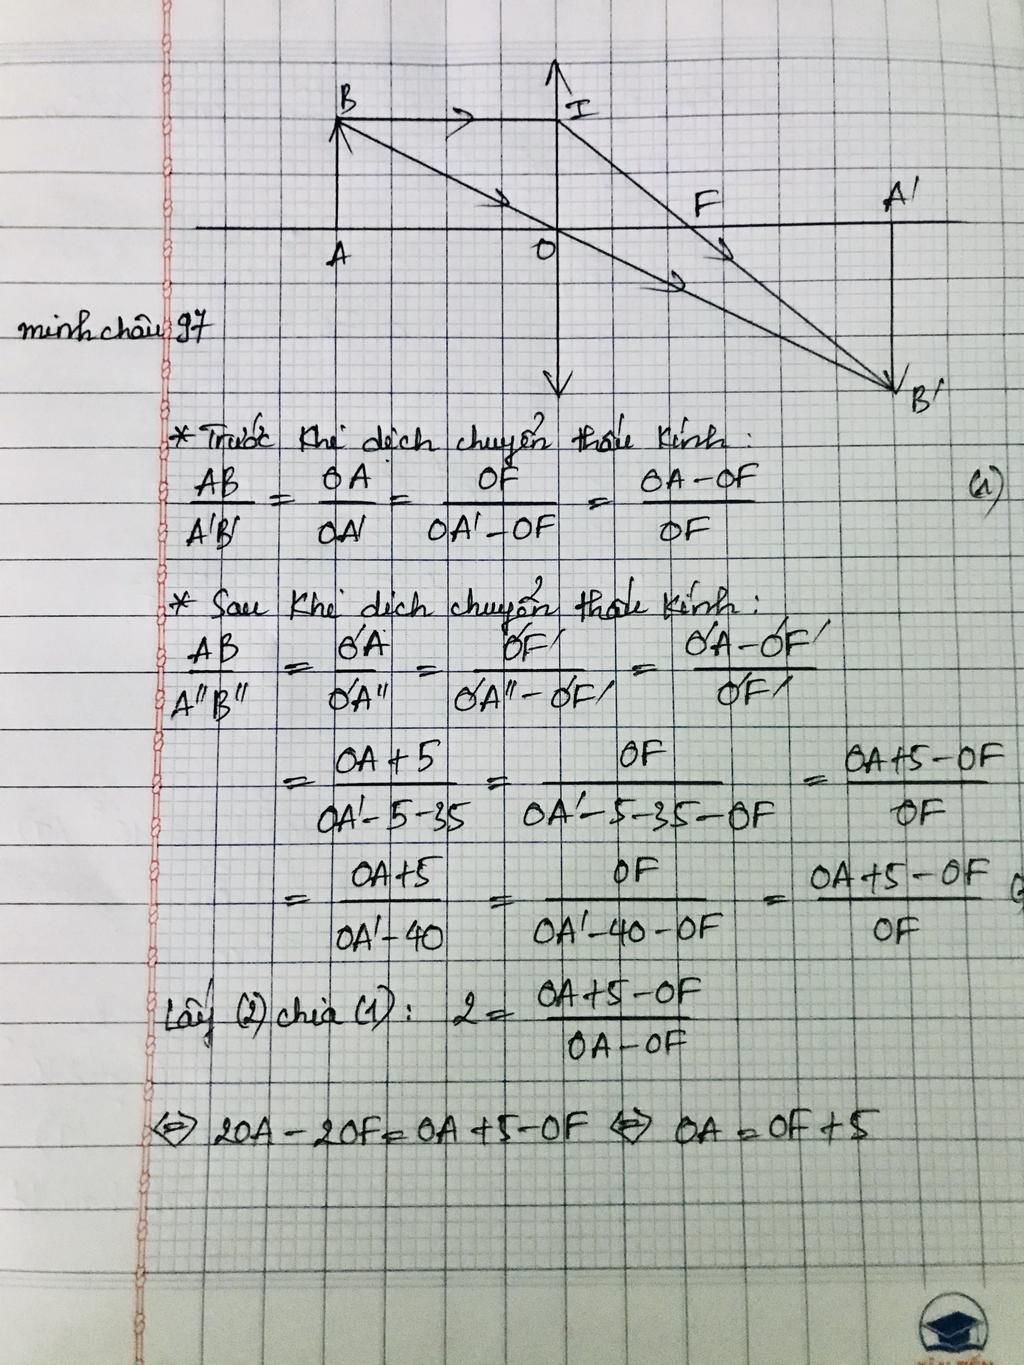 B
I
F
A'
A
O
minhchâu97
B'
* Trước khi dịch chuyển thấu kính:
AB/A'B' = OA/OA' = OF/(OA'-OF) = (OA-OF)/OF (1)
* Sau khi dịch chuyển thấu kính:
AB/A"B" = O'A/O'A" = O'F'/(O'A"-O'F') = (O'A-O'F')/O'F'
= (OA+5)/(OA'-5-35) = OF/(OA'-5-35-OF) = (OA+5-OF)/OF
= (OA+5)/(OA'-40) = OF/(OA'-40-OF) = (OA+5-OF)/OF
Lấy (2) chia (1): 2 = (OA+5-OF)/(OA-OF)
⇔ 2OA - 2OF = OA + 5 - OF ⇔ OA = OF + 5